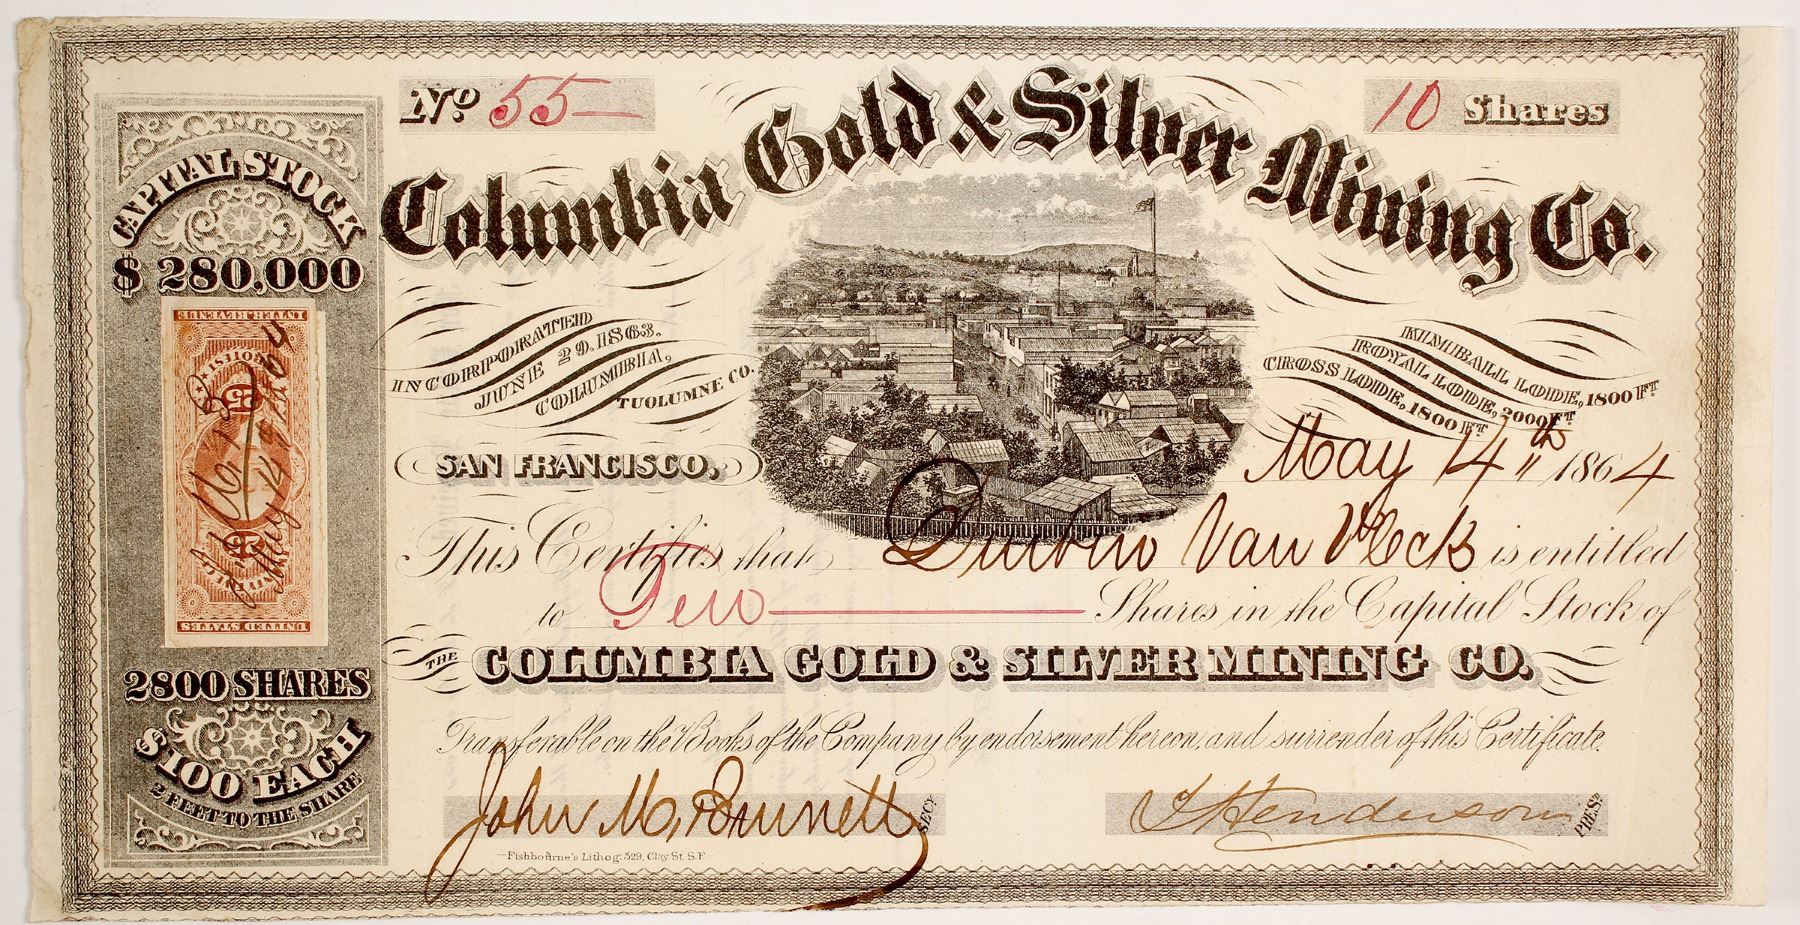 No. 55
10 Shares
Columbia Gold & Silver Mining Co.
CAPITAL STOCK
$ 280,000
INTER. REVENUE
25
25
May 14th 1864
UNITED STATES
2800 SHARES
$100 EACH
2 FEET TO THE SHARE
INCORPORATED
JUNE 29. 1863.
COLUMBIA,
TUOLUMNE CO.
KIMBALL LODE, 1800 FT.
ROYAL LODE, 2000 FT.
CROSS LODE, 1800 FT.
SAN FRANCISCO,
May 14th 1864
This Certifies that Durbin Van Vleck is entitled
to Ten Shares in the Capital Stock of
THE COLUMBIA GOLD & SILVER MINING CO.
Transferable on the Books of the Company by endorsement hereon, and surrender of this Certificate.
John M. Brunett SECY.
Henderson PREST.
Fishbourne's Lithog. 529, Clay St. S.F.